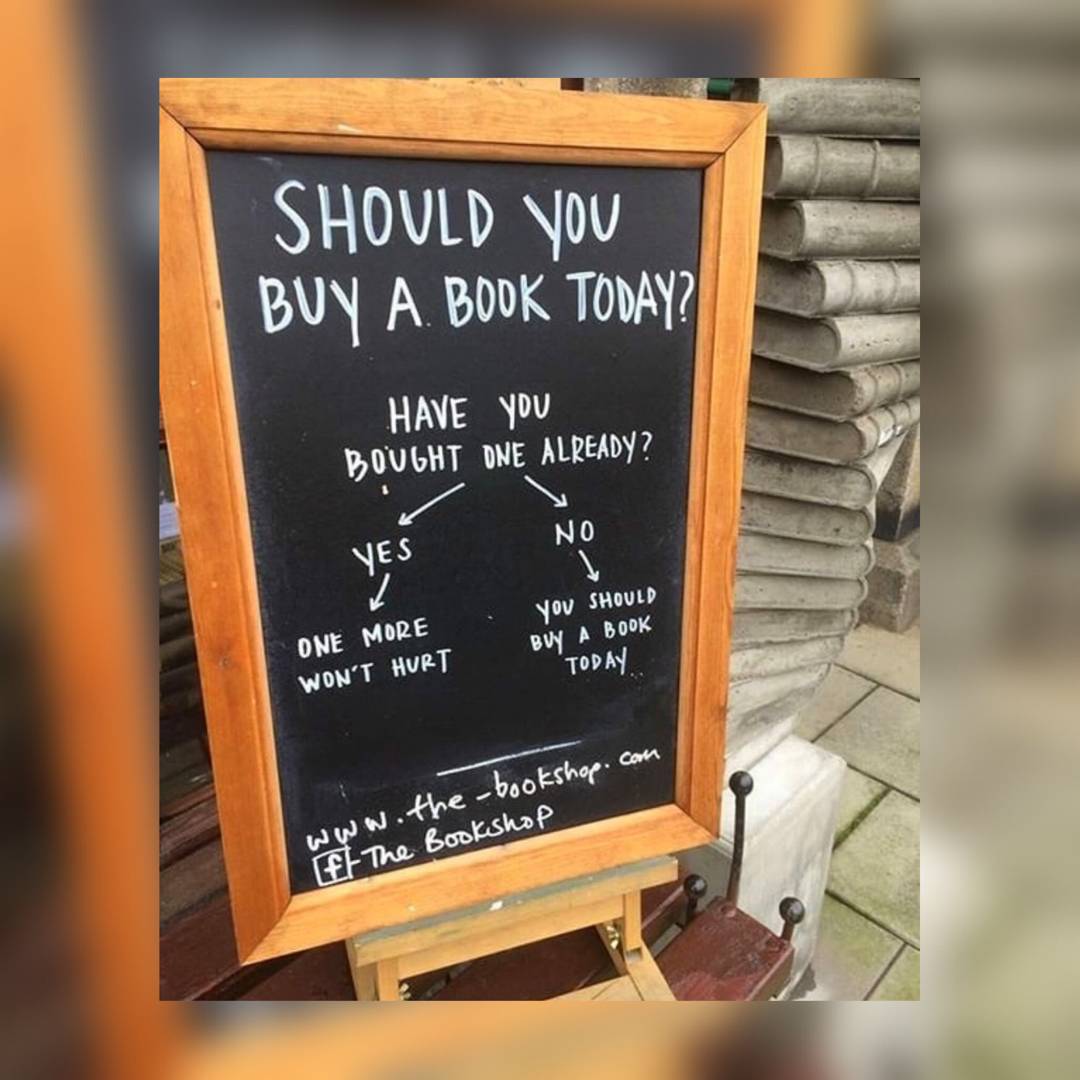 SHOULD YOU
BUY A BOOK TODAY?
HAVE YOU
BOUGHT ONE ALREADY?
YES
NO
ONE MORE
WON'T HURT
YOU SHOULD
BUY A BOOK
TODAY
www.the-bookshop.com
f - The Bookshop